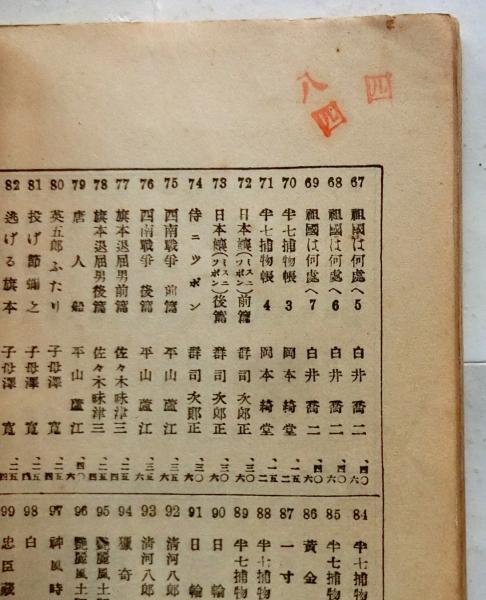 四
八
四
67 祖國は何處へ 5 白井喬二 .四〇 六
68 祖國は何處へ 6 白井喬二 .四〇 六
69 祖國は何處へ 7 白井喬二 .四〇 六
70 半七捕物帳 3 岡本綺堂 .一五 二
71 半七捕物帳 4 岡本綺堂 .一五 二
72 日本孃(ミスニツポン)前篇 群司次郎正 .三〇 六
73 日本孃(ミスニツポン)後篇 群司次郎正 .三〇 六
74 侍ニツポン 群司次郎正 .三〇 六
75 西南戰爭 前篇 平山蘆江 .三五 六
76 西南戰爭 後篇 平山蘆江 .三五 六
77 旗本退屈男前篇 佐々木味津三 .二五 四
78 旗本退屈男後篇 佐々木味津三 .二五 四
79 唐人船 平山蘆江 .四〇 六
80 英五郎ふたり 子母澤寛 .二五 四
81 投げ節彌之 子母澤寛 .二五 四
82 逃げる旗本 子母澤寛 .二五 四
84 半七捕物
85 半七捕物
86 黃金
87 一寸
88 半七捕物
89 半七捕物
90 日輪
91 日輪
92 淸河八郎
93 淸河八郎
94 獵奇
95 艷麗風土
96 艷麗風土
97 神風時
98 白
99 忠臣藏